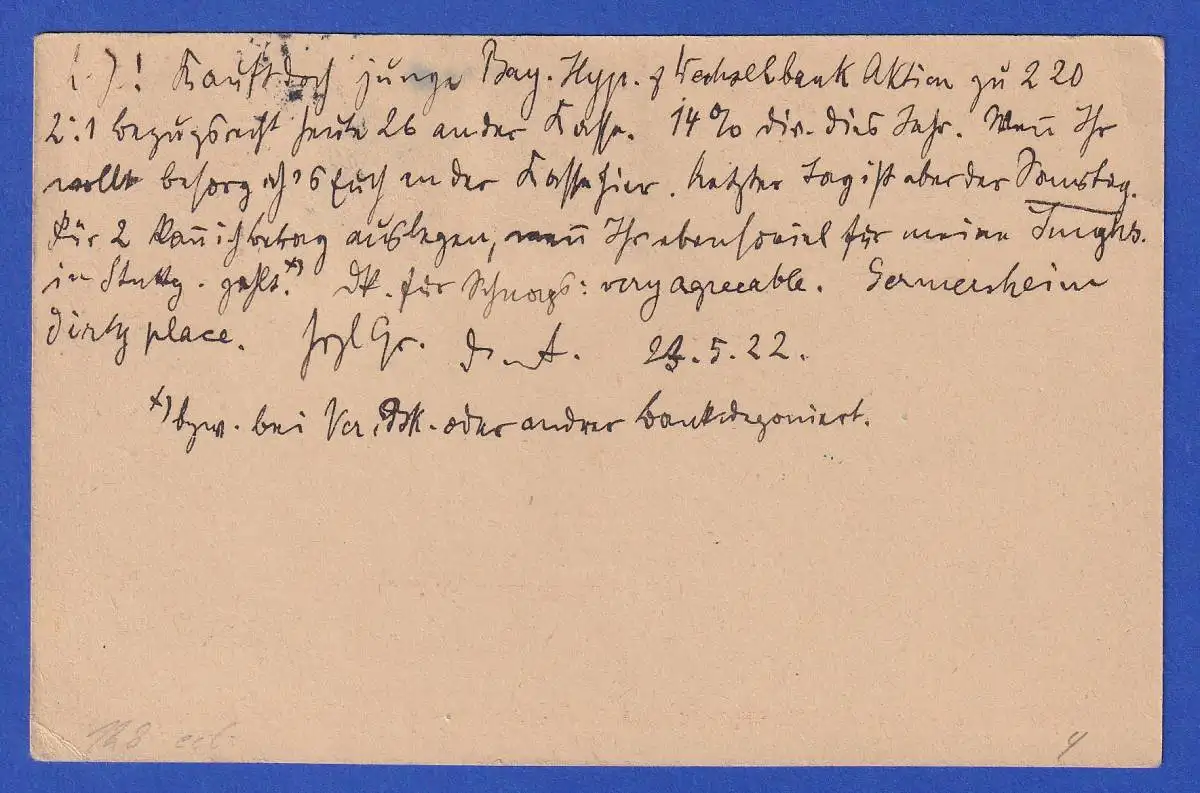 L. J.! Kauft doch junge Bay. Hyp. & Wechselbank Aktien zu 220
2:1 bezugsrecht heute 26 an der Kasse. 14% div. dies Jahr. Wenn Ihr
wollt besorg ich's Euch an der Kasse hier. Letzter Tag ist aber der Samstag.
Für 2 kann ich betrag auslegen, wenn Ihr ebensoviel für meine Junghs.
in Stuttg. zahlt.*) Dk. für Schnaps: very agreeable. Germersheim
dirty place. Hrzl Gr. 23.5.22.
*) bzw. bei Ver. Bk. oder andrer bank deponiert.